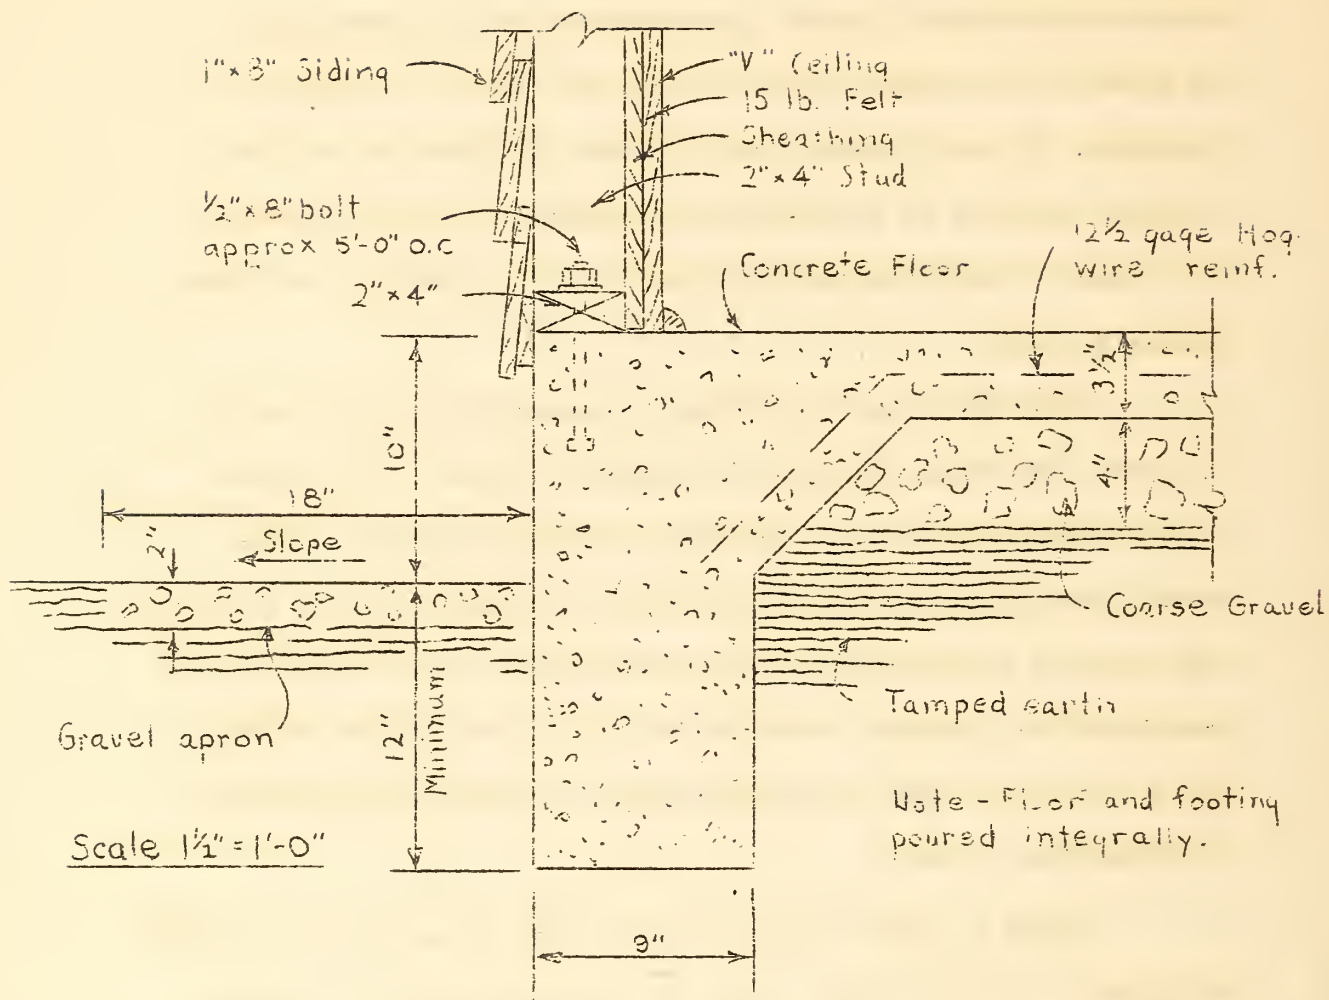 1"×8" Siding
"V" Ceiling
15 lb. Felt
Sheathing
2"×4" Stud
½"×8" bolt
approx 5'-0" o.c
2"×4"
Concrete Floor
12½ gage Hog
wire reinf.
3½"
10"
4"
18"
2"
Slope
Coarse Gravel
Tamped earth
Gravel apron
12"
Minimum
Note - Floor and footing
poured integrally.
Scale 1½" = 1'-0"
9"